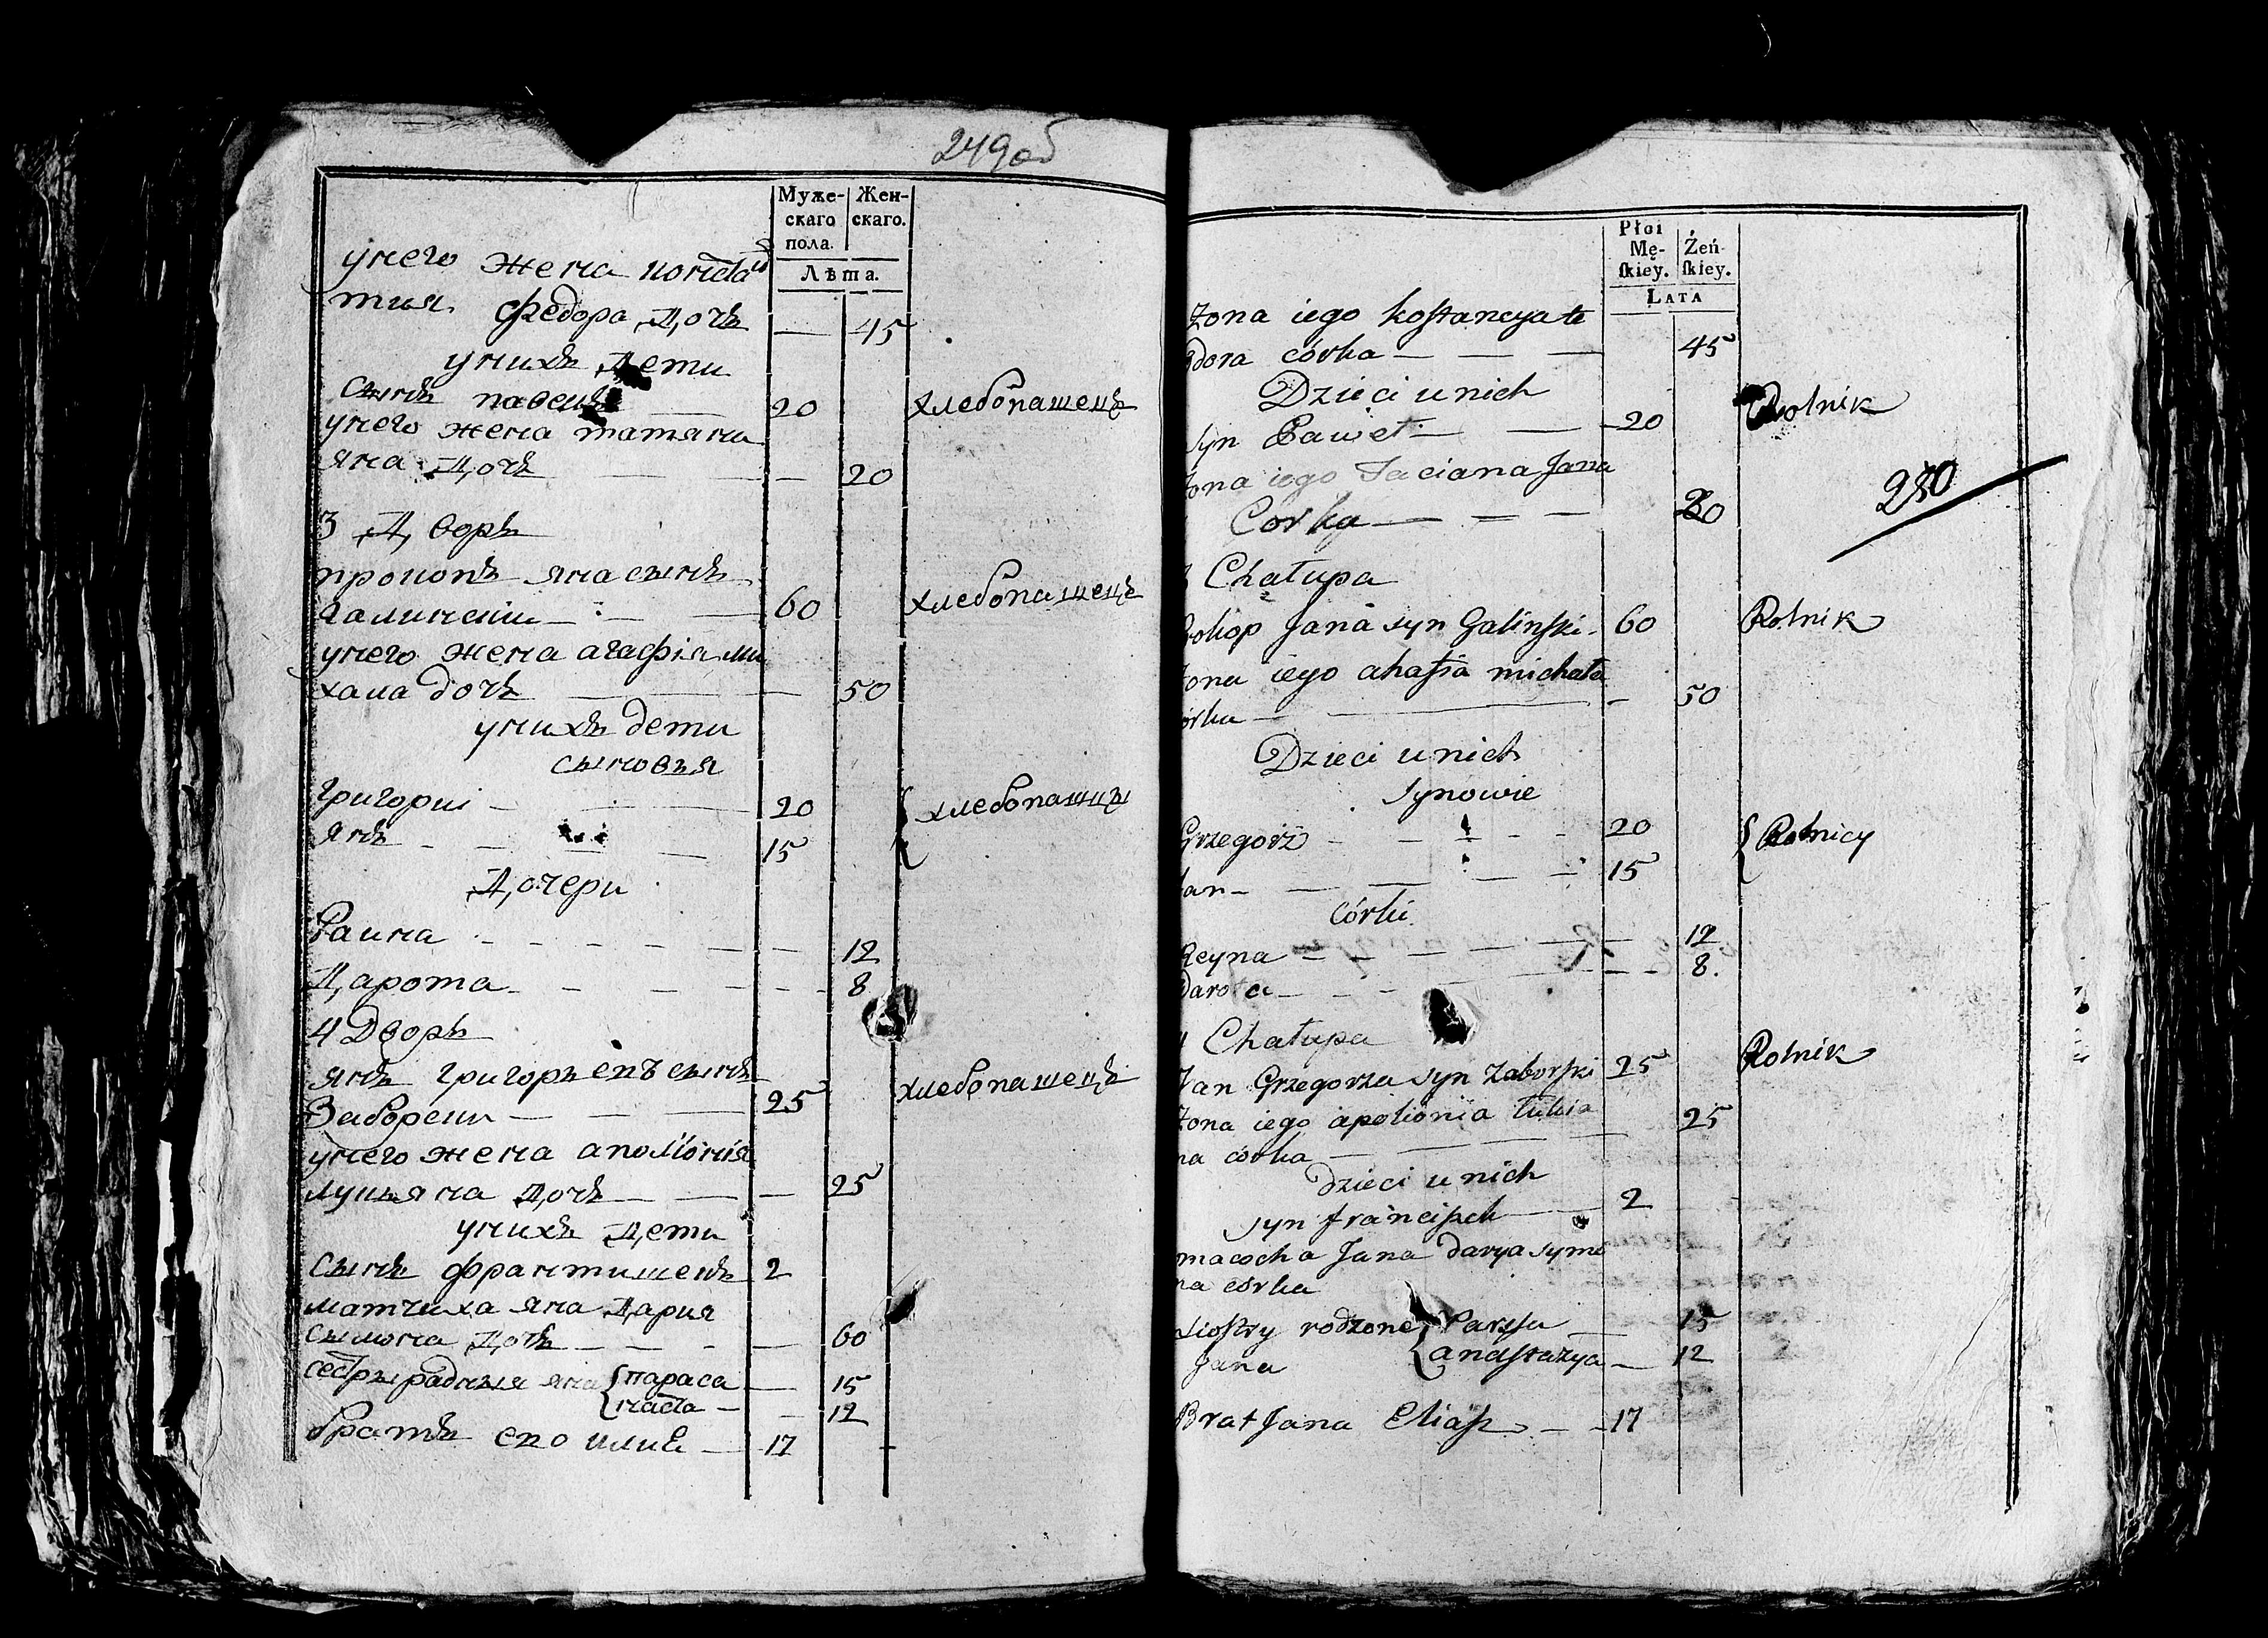 249об
Муже- Жен-
скаго скаго.
пола.
Лѣта.
унего жена констан
тия федора дочъ — 45
унихъ дети
сынъ павелъ — 20 хлебопашецъ
унего жена татяна
яна дочъ — — 20
3 дворъ
прокопъ яна сынъ
галинский — 60 хлебопашецъ
унего жена агафія ми
хала дочъ — 50
унихъ дети
сыновъя
григорий — 20 { хлебопашцы
янъ — 15
дочери
Раина — 12
дарота — 8
4 дворъ
янъ григоръевъ сынъ
Заборски — 25 хлебопашецъ
унего жена аполіония
лукъяна дочъ — — 25
унихъ дети
сынъ франтишекъ 2
матчиха яна дария
сымона дочъ — — 60
сестры радныя яна { параса — 15
наста — — 12
братъ ево — 17
Płci
Mę- Żeń-
skiey. skiey.
LATA
Żona iego kostancya te
odora córka — — — 45
Dzieci u nich
syn Paweł — — 20 Rolnik
żona iego Taciana Jana
Corka — — — 20
280
3 Chałupa
Prokop Jana syn Galinski 60 Rolnik
żona iego ahafia michała
córka — — 50
Dzieci u nich
synowie
Grzegorz — — 20 { Rolnicy
Jan — — 15
córki
Reyna — — 12
Darota — — 8.
4 Chałupa
Jan Grzegorza syn Zaborski 25 Rolnik
Żona iego apolionia łukia
na córka — — 25
dzieci u nich
syn francisek 2
macocha Jana darya symo
na córka
siostry rodzone { Parasa — 15
Jana { anastazya — 12
Brat Jana Eliasz — 17